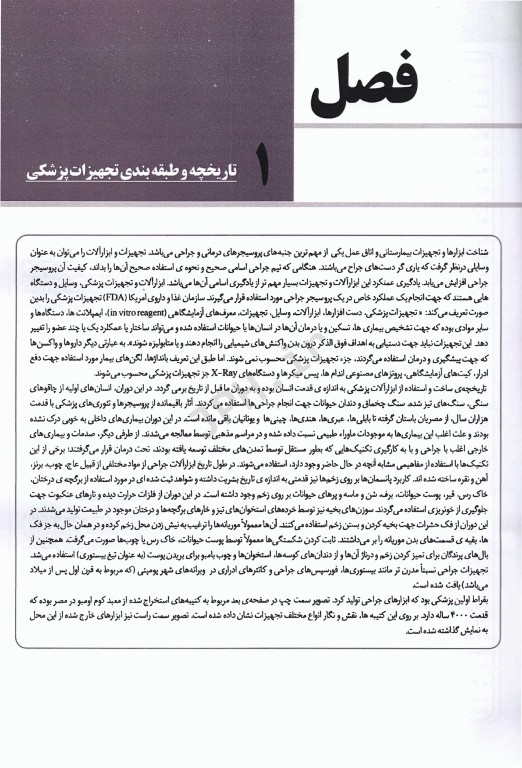 فصل
۱ تاریخچه و طبقه بندی تجهیزات پزشکی
شناخت ابزارها و تجهیزات بیمارستانی و اتاق عمل یکی از مهم ترین جنبه‌های پروسیجرهای درمانی و جراحی می‌باشد. تجهیزات و ابزارآلات را می‌توان به عنوان
وسایلی درنظر گرفت که یاری گر دست‌های جراح می‌باشند. هنگامی که تیم جراحی اسامی صحیح و نحوه ی استفاده صحیح آن‌ها را بداند، کیفیت آن پروسیجر
جراحی افزایش می‌یابد. یادگیری عملکرد این ابزارآلات و تجهیزات بسیار مهم تر از یادگیری اسامی آن‌ها می‌باشد. ابزارآلات و تجهیزات پزشکی، وسایل و دستگاه
هایی هستند که جهت انجام یک عملکرد خاص در یک پروسیجر جراحی مورد استفاده قرار می‌گیرند. سازمان غذا و داروی آمریکا (FDA) تجهیزات پزشکی را بدین
صورت تعریف می‌کند: « تجهیزات پزشکی، دست افزارها، ابزارآلات، وسایل، تجهیزات، معرف‌های آزمایشگاهی (in vitro reagent)، ایمپلانت ها، دستگاه‌ها و
سایر مواردی بوده که جهت تشخیص بیماری ها، تسکین و یا درمان آن‌ها در انسان‌ها یا حیوانات استفاده شده و می‌تواند ساختار یا عملکرد یک یا چند عضو را تغییر
دهد. این تجهیزات نباید جهت دستیابی به اهداف فوق الذکر درون بدن واکنش‌های شیمیایی را انجام دهند و یا متابولیزه شوند». به عبارتی دیگر داروها و واکسن ها
که جهت پیشگیری و درمان استفاده می‌گردند، جزء تجهیزات پزشکی محسوب نمی شوند. اما طبق این تعریف بانداژها، لگن‌های بیمار مورد استفاده جهت دفع
ادرار، کیت‌های آزمایشگاهی، پروتزهای مصنوعی اندام ها، پیس میکرها و دستگاه‌های X-Ray جز تجهیزات پزشکی محسوب می‌شوند.
تاریخچه‌ی ساخت و استفاده از ابزارآلات پزشکی به اندازه ی قدمت انسان بوده و به دوران ما قبل از تاریخ برمی گردد. در این دوران، انسان‌های اولیه از چاقوهای
سنگی، سنگ‌های تیز شده، سنگ چخماق و دندان حیوانات جهت انجام جراحی‌ها استفاده می کردند. آثار باقیمانده از پروسیجرها و تئوری‌های پزشکی با قدمت
هزاران سال، از مصریان باستان گرفته تا بابلی‌ها، عبری‌ها، هندی‌ها، چینی‌ها و یونانیان باقی مانده است. در این دوران بیماری‌های داخلی به خوبی درک نشده
بودند و علت اغلب این بیماری‌ها به موجودات ماوراء طبیعی نسبت داده شده و در مراسم مذهبی توسط معالجه می‌شدند. از طرفی دیگر، صدمات و بیماری‌های
خارجی اغلب با جراحی و با به کارگیری تکنیک‌هایی که بطور مستقل توسط تمدن‌های مختلف توسعه یافته بودند، تحت درمان قرار می‌گرفتند؛ برخی از این
تکنیک‌ها با استفاده از مفاهیمی مشابه آنچه در حال حاضر وجود دارد، استفاده می‌شوند. در طول تاریخ ابزارآلات جراحی از مواد مختلفی از قبیل عاج، چوب، برنز،
آهن و نقره ساخته شده اند. کاربرد پانسمان‌ها بر روی زخم‌ها نیز قدمتی به اندازه ی تاریخ بشریت داشته و شواهد ثبت شده ای در مورد استفاده از برگچه ی درختان،
خاک رس، قیر، پوست حیوانات، برف، شن و ماسه و پرهای حیوانات بر روی زخم وجود داشته است. در این دوران از فلزات حرارت دیده و تارهای عنکبوت جهت
جلوگیری از خونریزی استفاده می‌گردند. سوزن‌های بخیه نیز توسط خرده‌های استخوان‌های تیز و خارهای برگچه‌ها و درختان موجود در طبیعت تولید می‌شدند. در
این دوران از فک حشرات جهت بخیه کردن و بستن زخم استفاده می‌کنند. آن‌ها معمولاً موریانه‌ها را ترغیب به نیش زدن محل زخم کرده و در همان حال به جز فک
ها، بقیه ی قسمت‌های بدن موریانه را بر می‌داشتند. ثابت کردن شکستگی‌ها معمولاً توسط پوست حیوانات، خاک رس یا چوب‌ها صورت می‌گرفت. همچنین از
بال‌های پرندگان برای تمیز کردن زخم و درناژ آن‌ها و از دندان‌های کوسه‌ها، استخوان‌ها و چوب بامبو برای بریدن پوست (به عنوان تیغ بیستوری) استفاده می‌شد.
تجهیزات جراحی نسبتاً مدرن تر مانند بیستوری‌ها، فورسپس‌های جراحی و کاتترهای ادراری در ویرانه‌های شهر پومپئی (که مربوط به قرن اول پس از میلاد
می‌باشد) یافت شده است.
بقراط اولین پزشکی بود که ابزارهای جراحی تولید کرد. تصویر سمت چپ در صفحه‌ی بعد مربوط به کتیبه‌های استخراج شده از معبد کوم اومبو در مصر بوده که
قدمت ۴۰۰۰ ساله دارد. بر روی این کتیبه ها، نقش و نگار انواع مختلف تجهیزات نشان داده شده است. تصویر سمت راست نیز ابزارهای خارج شده از این محل
به نمایش گذاشته شده است.